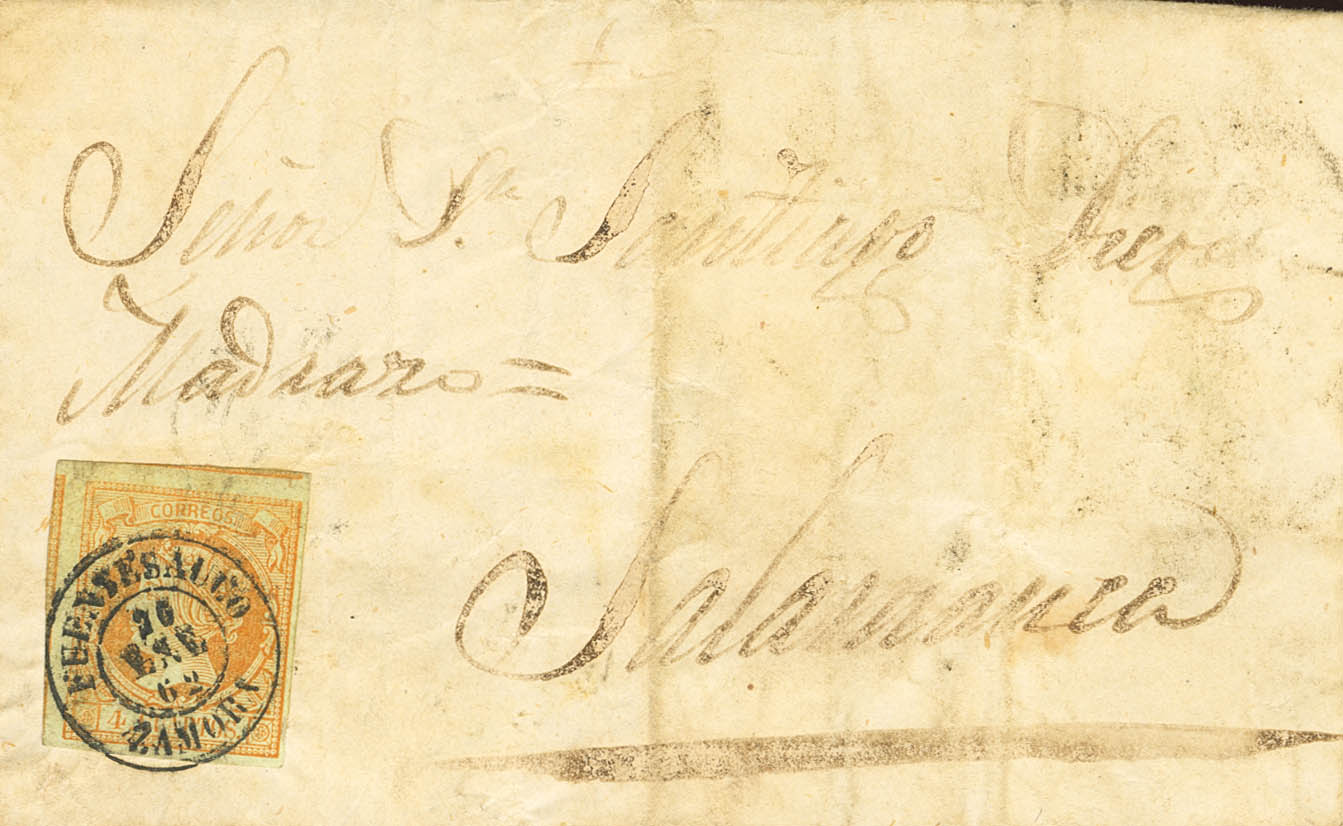 Señor Dn. Santiago Diez
Madrazo =
Salamanca
CORREOS
FUENTESAUCO
26
ENE
62
ZAMORA
4